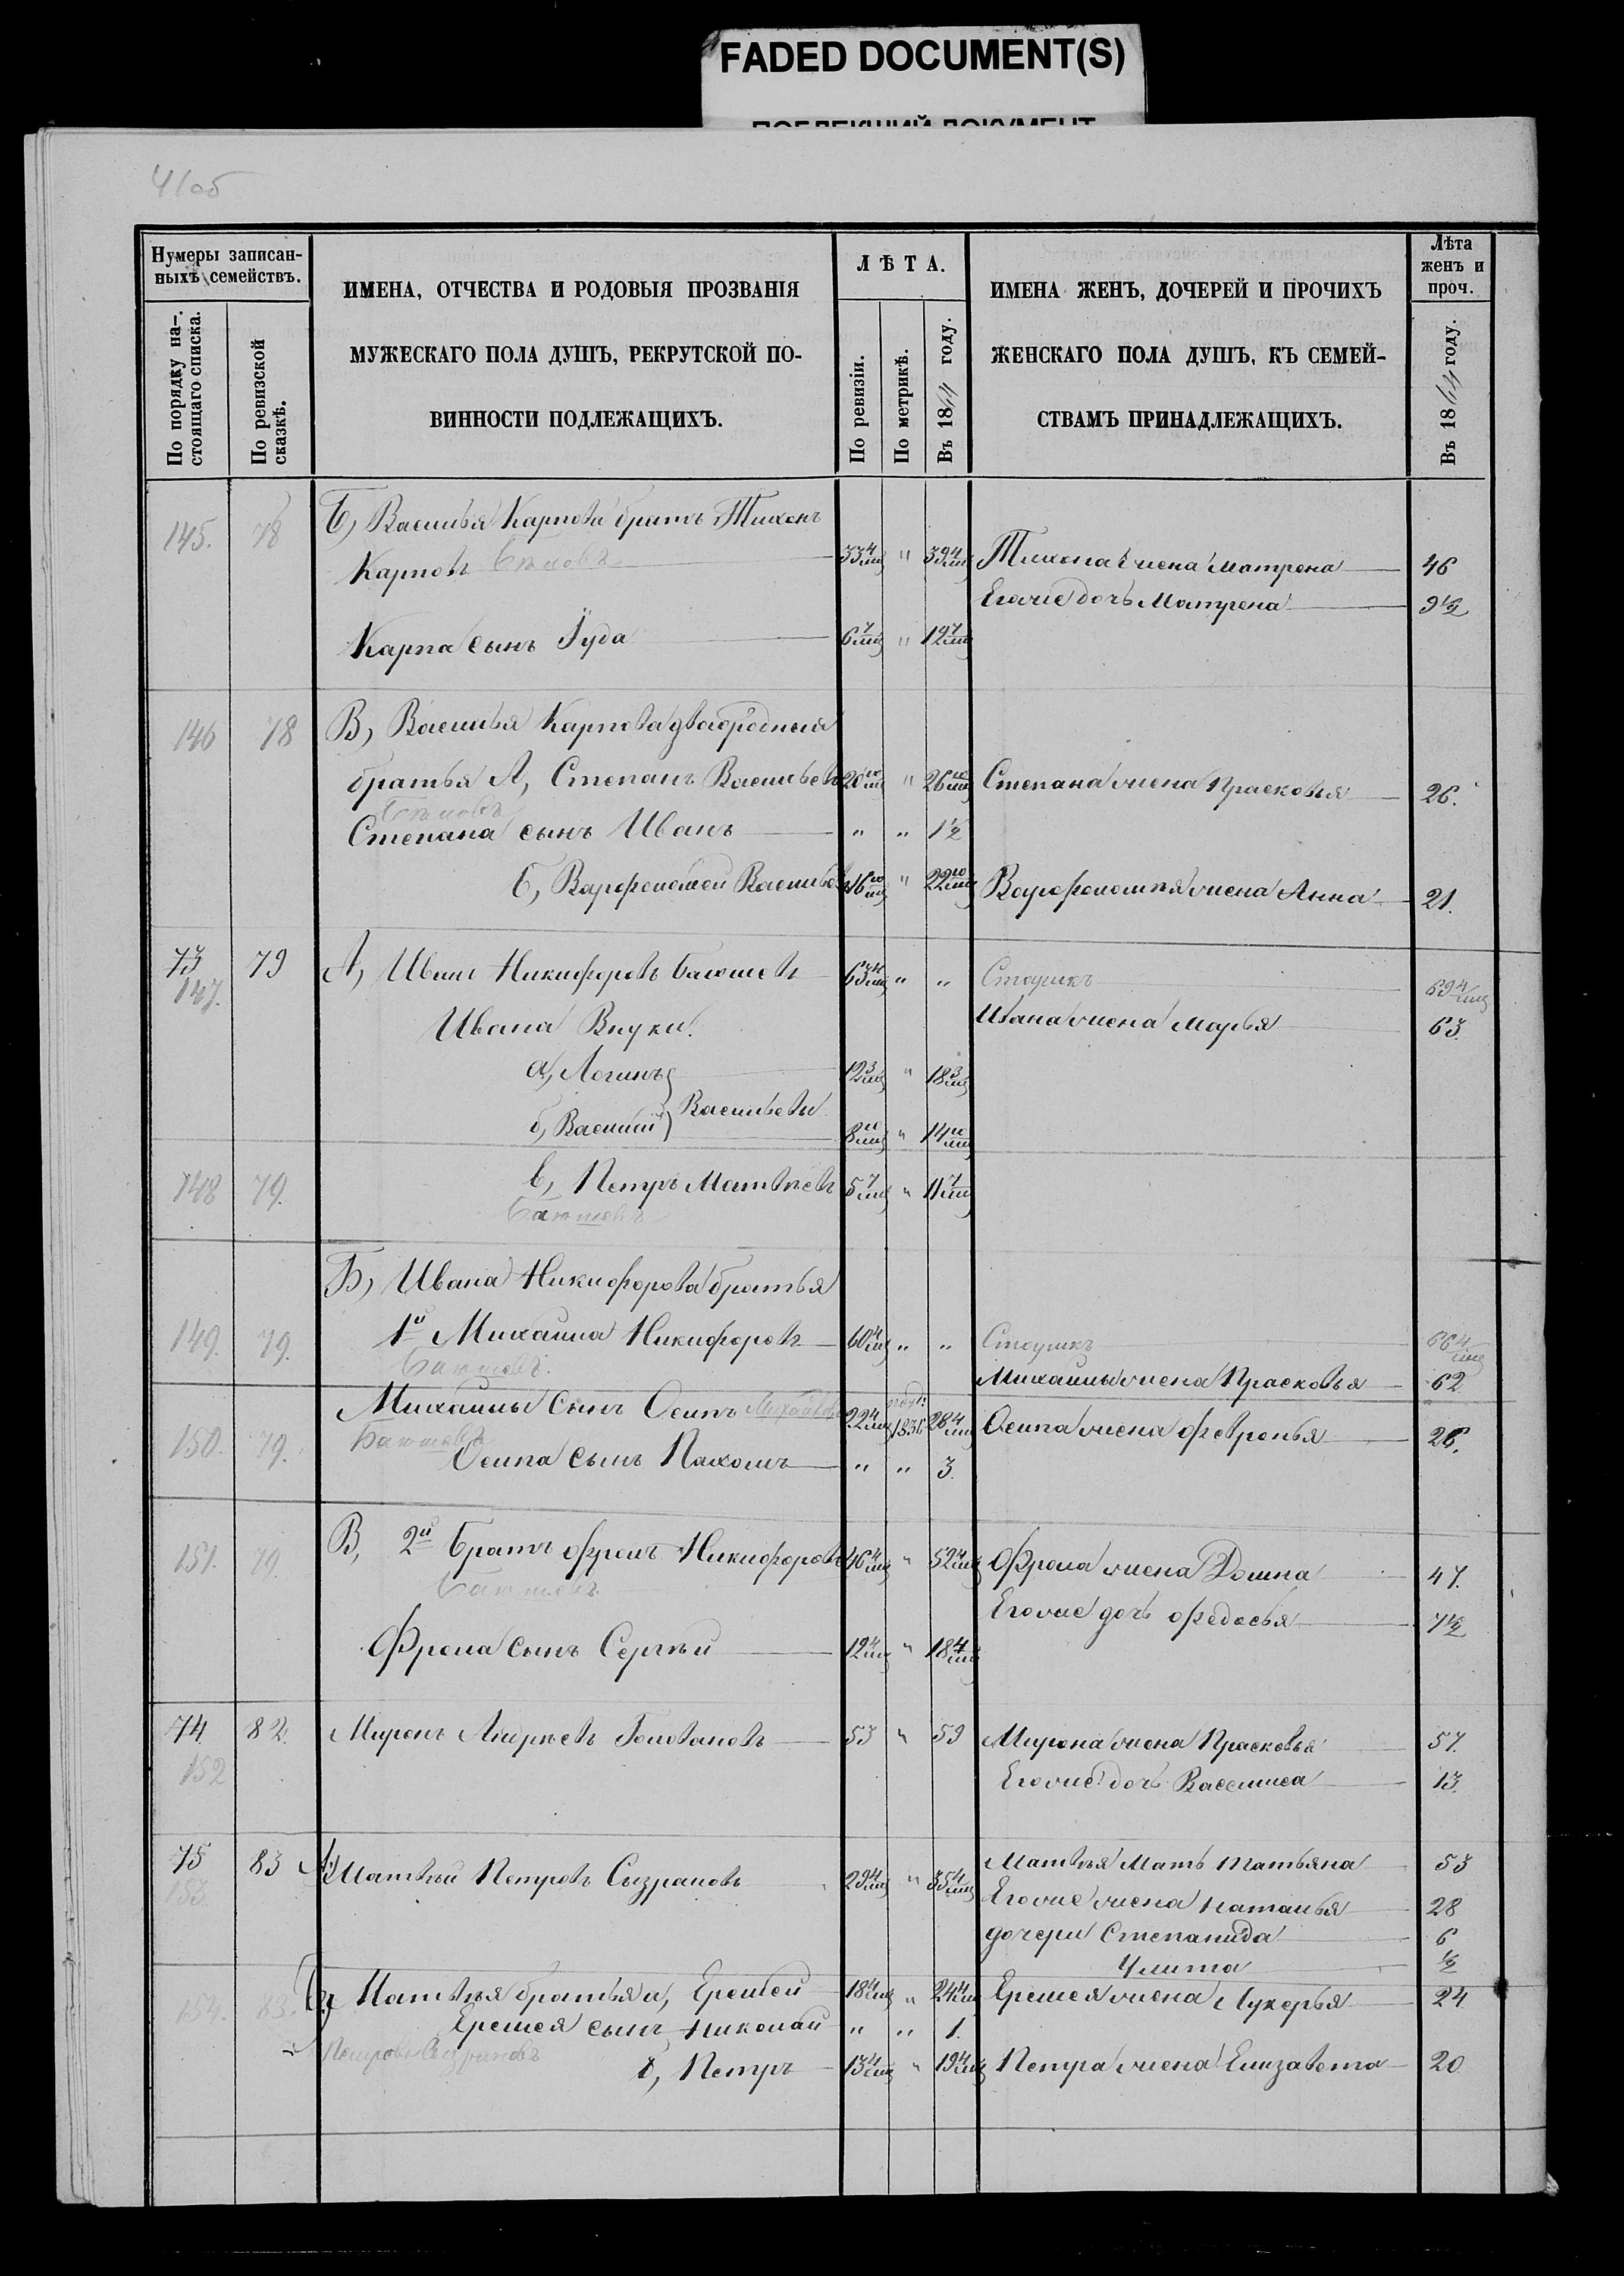 FADED DOCUMENT(S)
41об
Нумеры записан-
ныхъ семействъ.
По порядку на-
стоящаго списка.
По ревизской
сказкѣ.
ИМЕНА, ОТЧЕСТВА И РОДОВЫЯ ПРОЗВАНІЯ
МУЖЕСКАГО ПОЛА ДУШЪ, РЕКРУТСКОЙ ПО-
ВИННОСТИ ПОДЛЕЖАЩИХЪ.
ЛѢТА.
По ревизіи.
По метрикѣ.
Въ 1864 году.
ИМЕНА ЖЕНЪ, ДОЧЕРЕЙ И ПРОЧИХЪ
ЖЕНСКАГО ПОЛА ДУШЪ, КЪ СЕМЕЙ-
СТВАМЪ ПРИНАДЛЕЖАЩИХЪ.
Лѣта
женъ и
проч.
Въ 1864 году.
145. 78 Б, Василья Карпова братъ Тихонъ
Карповъ Бѣловъ 33 4/мц " 39 4/мц Тихона жена Матрена 46
Его же дочь Матрена 9 1/2
Карпа сынъ Іуда 6 7/мц " 12 7/мц
146 78 В, Василья Карпова двабродныя
братья А, Степанъ Васильевъ 20 10/мц " 26 10/мц Степана жена Прасковья 26.
Бѣловъ
Степана сынъ Иванъ " " 1 1/2
Б, Варфоломей Васильевъ 16 10/мц " 22 10/мц Варфоломея жена Анна 21.
73 79 А, Иванъ Никифоровъ Баюшевъ 63 4/мц " " Старикъ 69 4/мц
147.
Ивана Внуки. Ивана жена Марья 63.
а, Логинъ 12 3/мц " 18 3/мц
Васильевы
б, Василій 8 10/мц " 14 10/мц
148 79. в, Петръ Матвѣевъ 5 7/мц " 11 7/мц
Баюшевъ
Б, Ивана Никифорова братья
149. 79. 1й Михаила Никифоровъ 60 4/мц " " Старикъ 66 4/мц
Баюшевъ. Михаилы жена Прасковья 62
150. 79. Михаилы сынъ Осипъ Михайловъ 22 4/мц 28 4/мц Осипа жена Февронья 26.
Баюшевъ
Осипа сынъ Пахомъ " " 3.
151. 79. В, 2й братъ Фролъ Никифоровъ 46 4/мц " 52 4/мц Фрола жена Домна 47.
Баюшевъ
Его же дочь Федосья 7 1/2
Фрола сынъ Сергѣй 12 4/мц " 18 4/мц
74 82. Миронъ Андрѣевъ Головановъ 53 " 59 Мирона жена Прасковья 57.
152 Его же дочь Васелиса 13.
75 83 А, Матвѣй Петровъ Сызрановъ 29 4/мц " 35 4/мц Матвѣя Мать Татьяна 53
153. Его же жена Наталья 28
дочери Степанида 6
Улита 1/2
154. 83. Б, Матвѣя братья а, Еремей 18 4/мц " 24 4/мц Еремея жена Лукерья 24
Еремея сынъ Николай " " 1.
Петровы Сызрановъ б, Петръ 13 4/мц " 19 4/мц Петра жена Елизавета 20